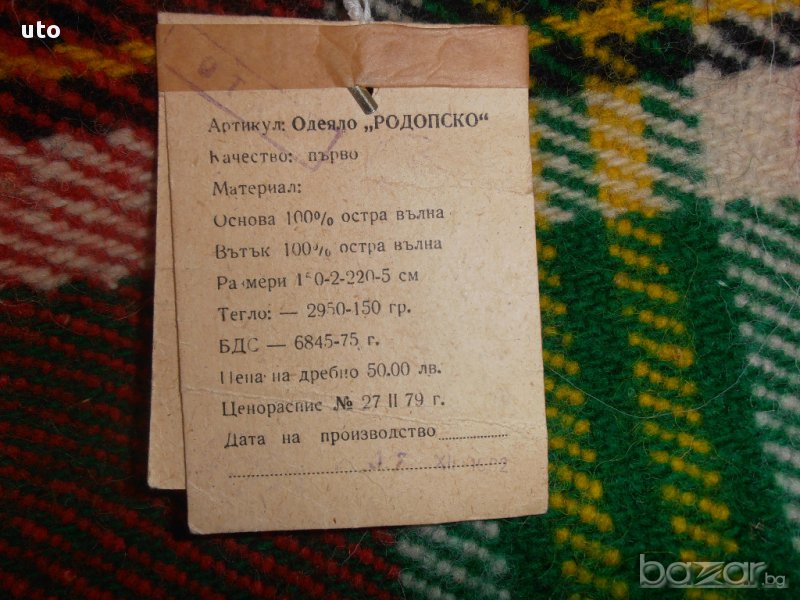 uto
Артикул: Одеяло „РОДОПСКО“
Качество: първо
Материал:
Основа 100% остра вълна
Вътък 100% остра вълна
Размери 220-5 см
Тегло: — 2950-150 гр.
БДС — 6845-75 г.
Цена на дребно 50.00 лв.
Ценоразпис № 27 II 79 г.
Дата на производство
bazar.bg